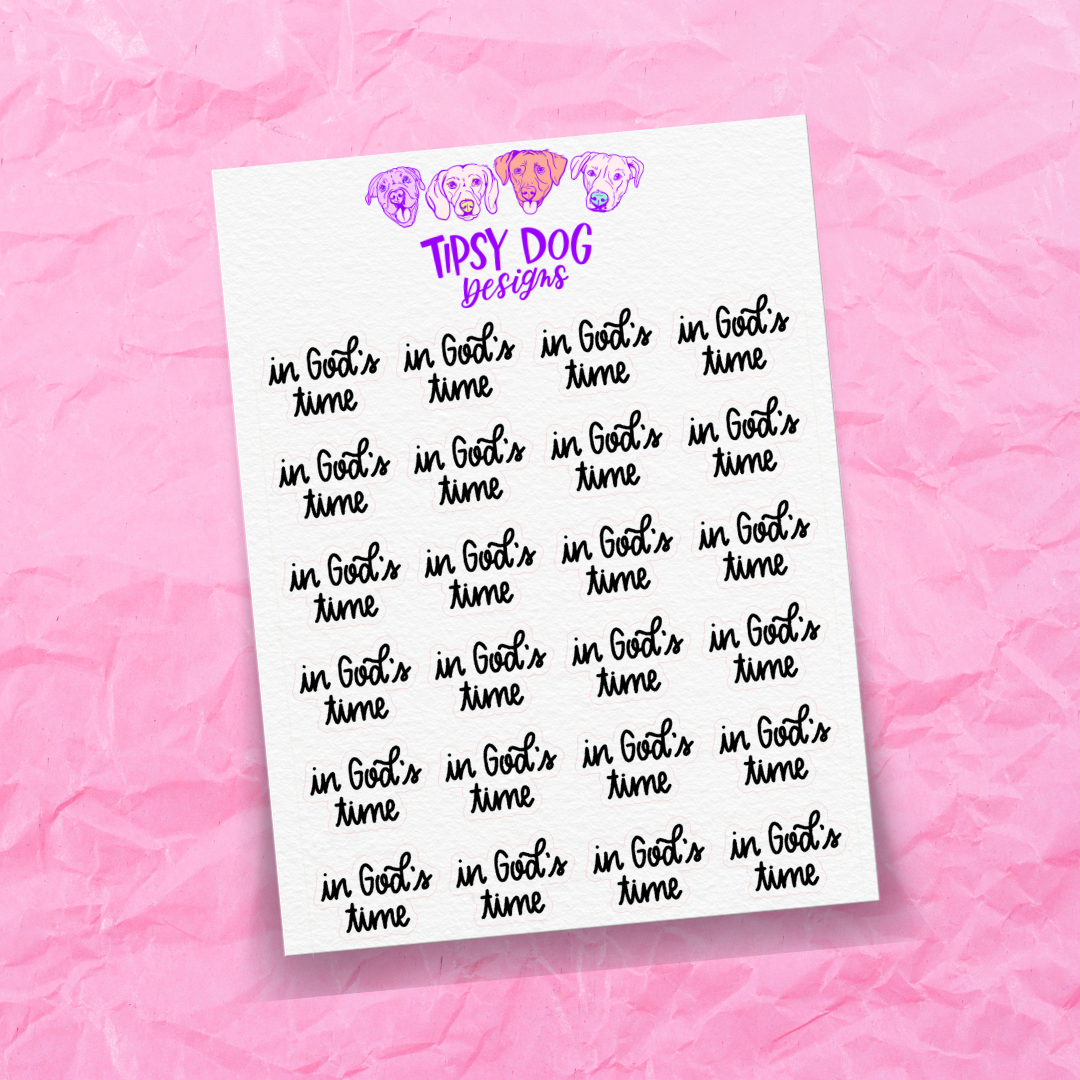 TIPSY DOG
Designs
in God's
time
in God's
time
in God's
time
in God's
time
in God's
time
in God's
time
in God's
time
in God's
time
in God's
time
in God's
time
in God's
time
in God's
time
in God's
time
in God's
time
in God's
time
in God's
time
in God's
time
in God's
time
in God's
time
in God's
time
in God's
time
in God's
time
in God's
time
in God's
time